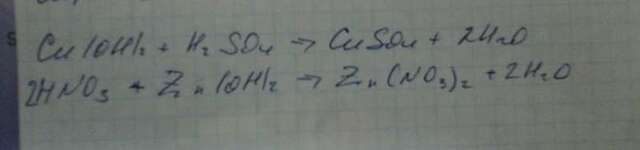 Cu(OH)₂ + H₂SO₄ → CuSO₄ + 2H₂O
2HNO₃ + Zn(OH)₂ → Zn(NO₃)₂ + 2H₂O